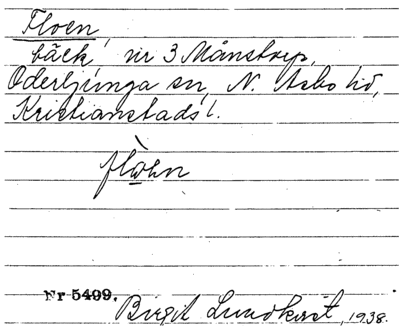 Floen,
bäck, vir 3 Månstorp,
Oderljunga sn, N. Åsbo hd,
Kristianstads l.
flòen
Nr 5499.
Birgit Lundkvist, 1938.